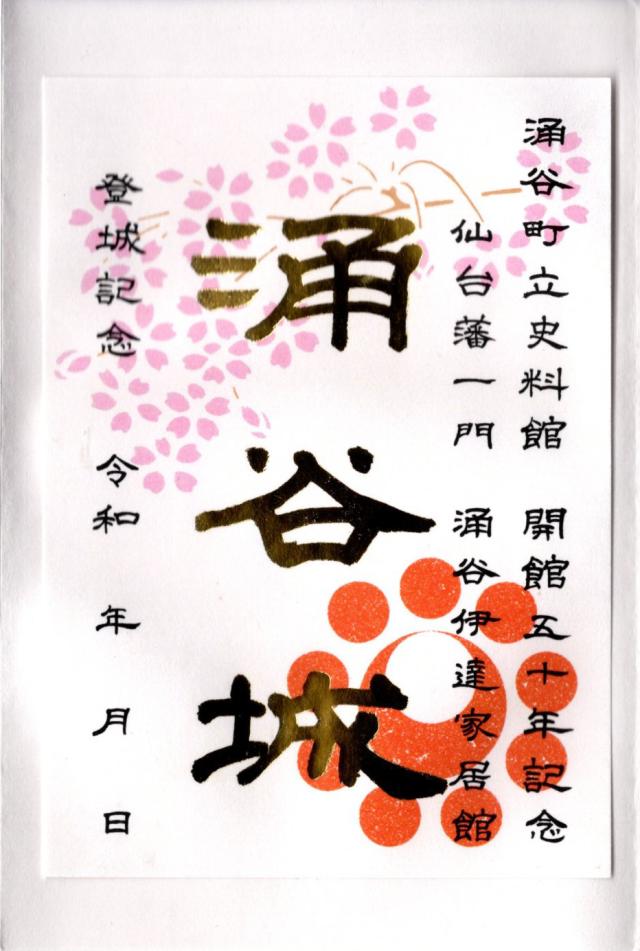 涌谷町立史料館 開館五十年記念
仙台藩一門 涌谷伊達家居館
涌谷城
登城記念 令和 年 月 日